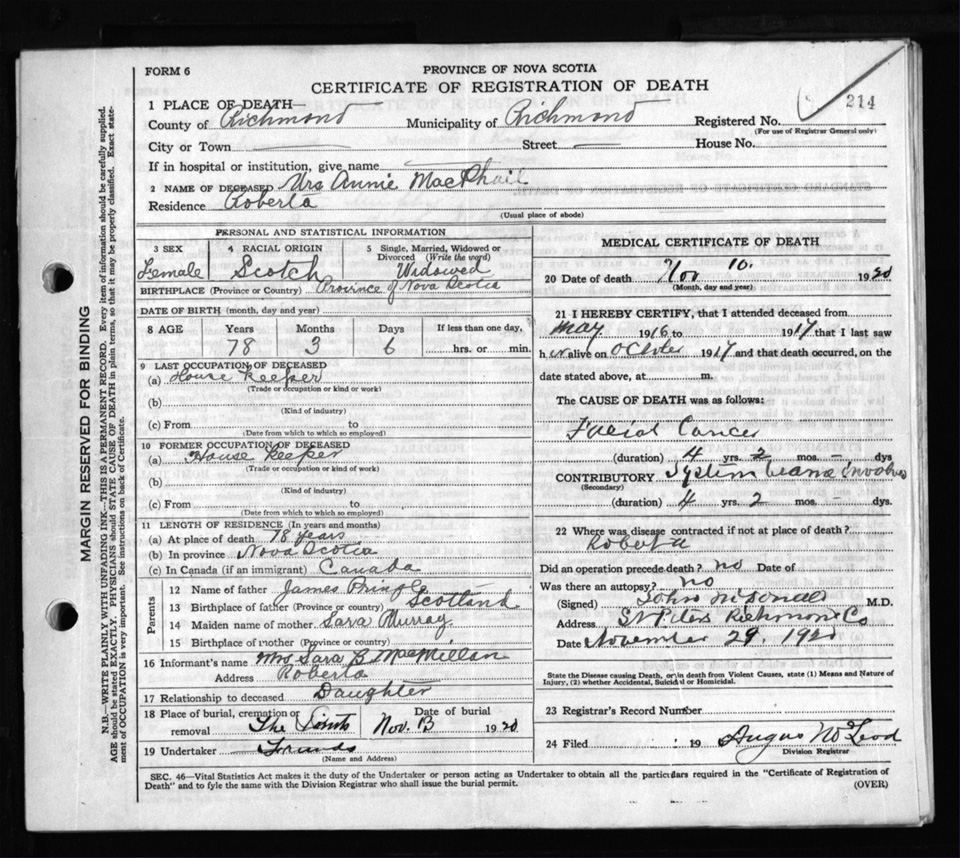 FORM 6
PROVINCE OF NOVA SCOTIA
CERTIFICATE OF REGISTRATION OF DEATH
214
1 PLACE OF DEATH—
County of Richmond Municipality of Richmond Registered No.
(For use of Registrar General only)
City or Town — Street — House No.
If in hospital or institution, give name —
2 NAME OF DECEASED Mrs Annie MacPhail
Residence Roberta
(Usual place of abode)
PERSONAL AND STATISTICAL INFORMATION
3 SEX 4 RACIAL ORIGIN 5 Single, Married, Widowed or Divorced (Write the word)
Female Scotch Widowed
BIRTHPLACE (Province or Country) Province of Nova Scotia
DATE OF BIRTH (month, day and year)
8 AGE Years Months Days If less than one day,
78 3 6 hrs. or min.
9 LAST OCCUPATION OF DECEASED
(a) House Keeper
(Trade or occupation or kind or work)
(b)
(Kind of industry)
(c) From to
(Date from which to which so employed)
10 FORMER OCCUPATION OF DECEASED
(a) House Keeper
(Trade or occupation or kind of work)
(b)
(Kind of industry)
(c) From to
(Date from which to which so employed)
11 LENGTH OF RESIDENCE (In years and months)
(a) At place of death 78 years
(b) In province Nova Scotia
(c) In Canada (if an immigrant) Canada
Parents
12 Name of father James Pringle
13 Birthplace of father (Province or country) Scotland
14 Maiden name of mother Sara Murray
15 Birthplace of mother (Province or country)
16 Informant's name Mrs Sara B MacMillan
Address Roberta
17 Relationship to deceased Daughter
18 Place of burial, cremation or removal Date of burial
The Points Nov. 13 1920
19 Undertaker Friends
(Name and Address)
MEDICAL CERTIFICATE OF DEATH
20 Date of death Nov 10. 1920
(Month, day and year)
21 I HEREBY CERTIFY, that I attended deceased from
May 1916 to 1917 that I last saw
h er alive on October 1917 and that death occurred, on the
date stated above, at m.
The CAUSE OF DEATH was as follows:
Facial Cancer
(duration) 4 yrs. 2 mos. — dys.
CONTRIBUTORY System being involved
(Secondary)
(duration) 4 yrs. 2 mos. — dys.
22 Where was disease contracted if not at place of death?
Roberta
Did an operation precede death? no Date of
Was there an autopsy? no
(Signed) John McDonald M.D.
Address St Peters Richmond Co
Date November 29, 1920
State the Disease causing Death, or in death from Violent Causes, state (1) Means and Nature of
Injury, (2) whether Accidental, Suicidal or Homicidal.
23 Registrar's Record Number
24 Filed 19 Angus McLeod
Division Registrar
SEC. 46—Vital Statistics Act makes it the duty of the Undertaker or person acting as Undertaker to obtain all the particulars required in the "Certificate of Registration of
Death" and to fyle the same with the Division Registrar who shall issue the burial permit. (OVER)
MARGIN RESERVED FOR BINDING
N.B.—WRITE PLAINLY WITH UNFADING INK—THIS IS A PERMANENT RECORD. Every item of information should be carefully supplied.
AGE should be stated EXACTLY. PHYSICIANS should STATE CAUSE OF DEATH in plain terms, so that it may be properly classified. Exact state-
ment of OCCUPATION is very important. See instructions on back of Certificate.